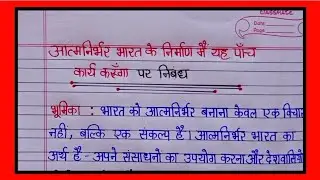 CLASSMATE
Date
Page
आत्मनिर्भर भारत के निर्माण में यह पाँच
कार्य करूँगा पर निबंध
भूमिका : भारत को आत्मनिर्भर बनाना केवल एक विचार
नहीं, बल्कि एक संकल्प है। आत्मनिर्भर भारत का
अर्थ है - अपने संसाधनों का उपयोग करना और देशवासियों